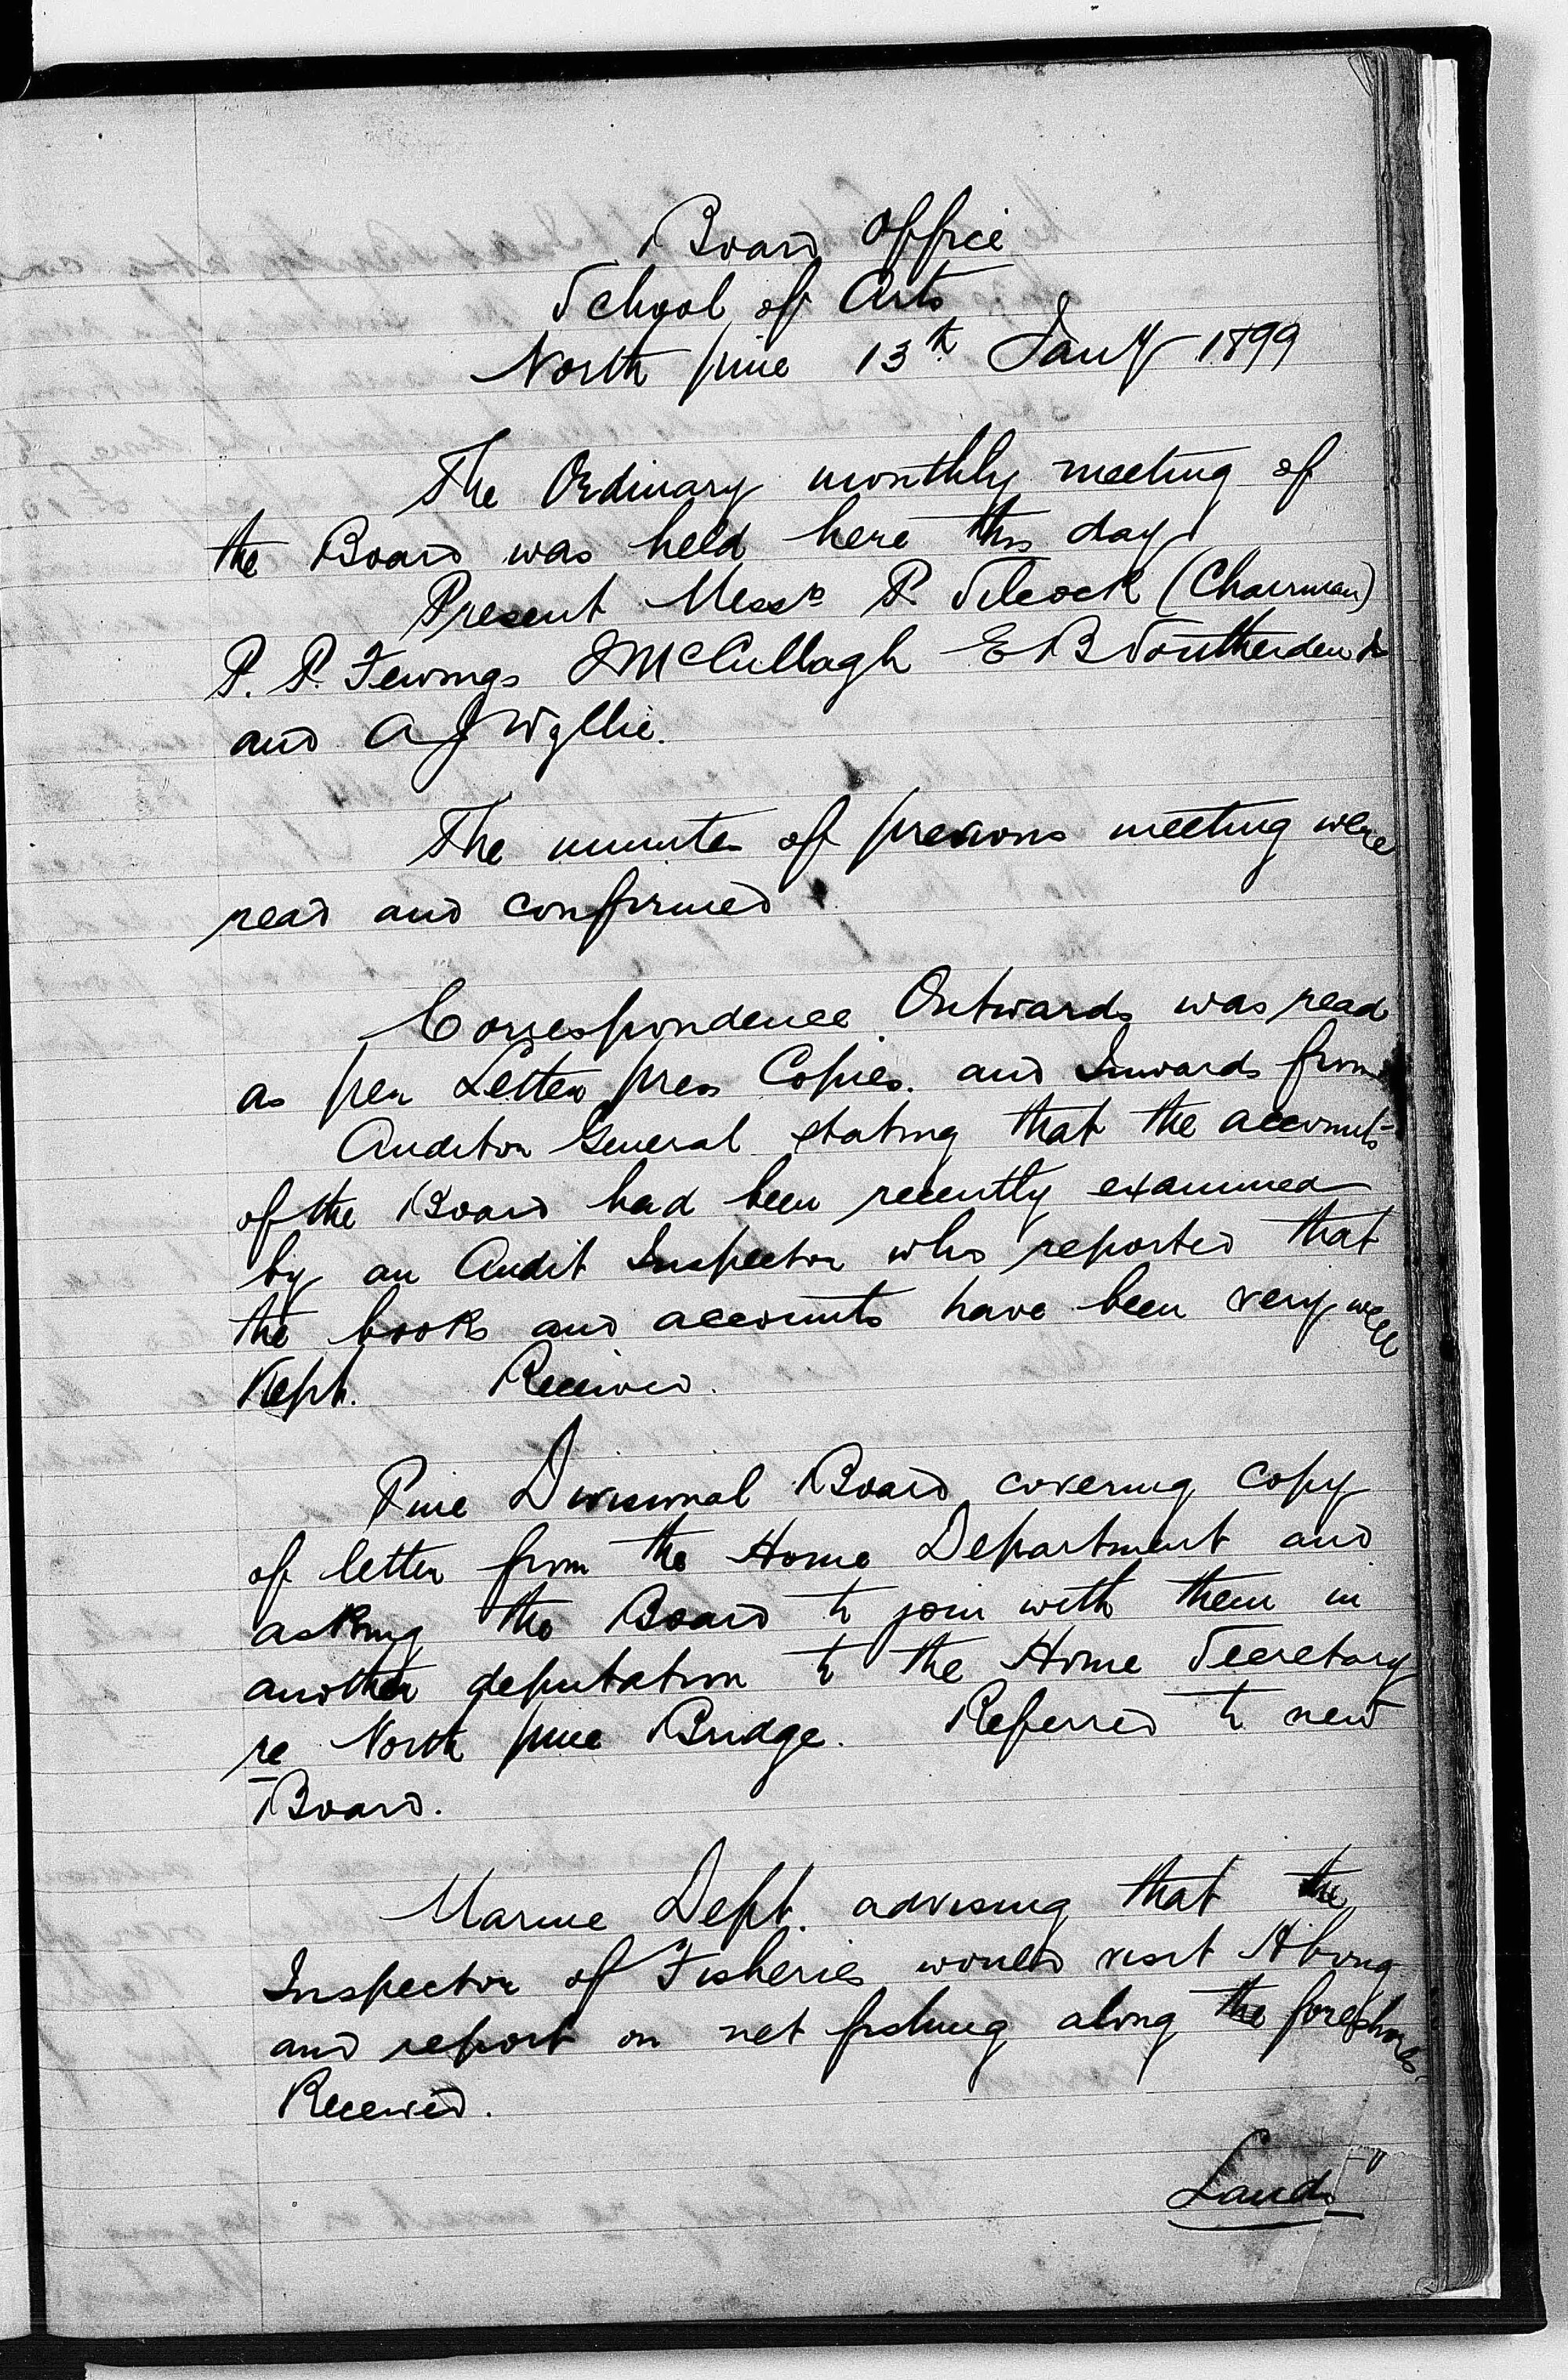 Board Office
School of Arts
North Pine 13th Jany 1899
The Ordinary monthly meeting of
the Board was held here this day
Present Messrs P. Silcock (Chairman)
P. P. Fewings J McCullagh E B Southerden Jr
and A J Wyllie.
The minutes of previous meeting were
read and confirmed.
Correspondence Outwards was read
as per Letter press Copies. and Inwards from
Auditor General stating that the accounts
of the Board had been recently examined
by an Audit Inspector who reported that
the books and accounts have been very well
Kept. Received.
Pine Divisional Board covering copy
of letter from the Home Department and
asking the Board to join with them in
another deputation to the Home Secretary
re North Pine Bridge. Referred to new
Board.
Marine Dept. advising that the
Inspector of Fisheries would visit
and report on net fishing along the foreshores.
Received.
Lands